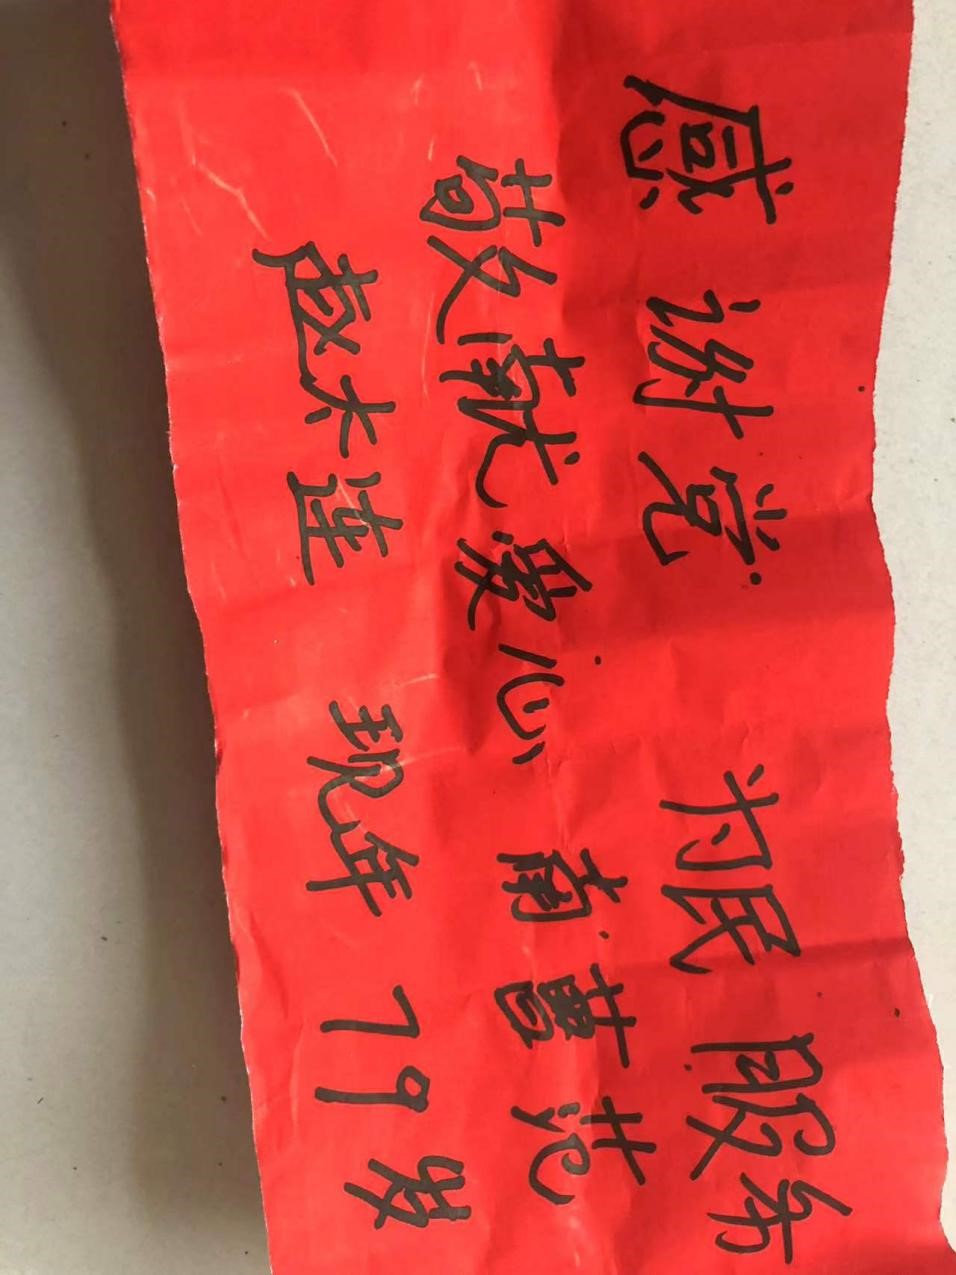 感谢党 为民服务
敬献爱心 南苑
赵大连 现年 79岁